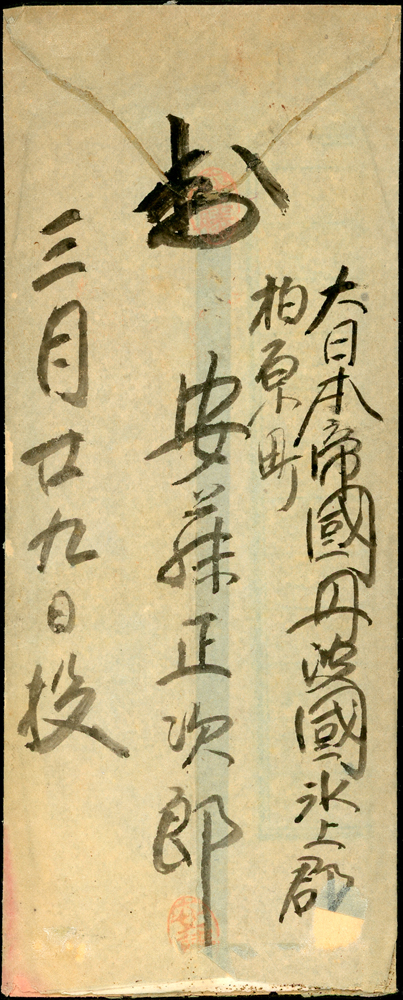 大日本帝國丹波國氷上郡
柏原町
安藤正次郎
三月廿九日投